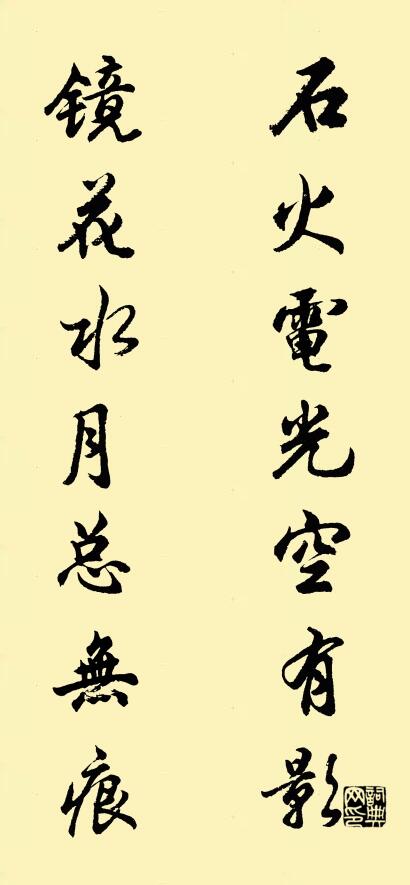 石火電光空有影
镜花水月总無痕
詞典网印